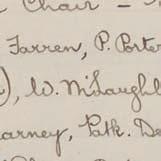 Chair —
Farren, P. Porter
), W. McLaughl
arney, Patk. De